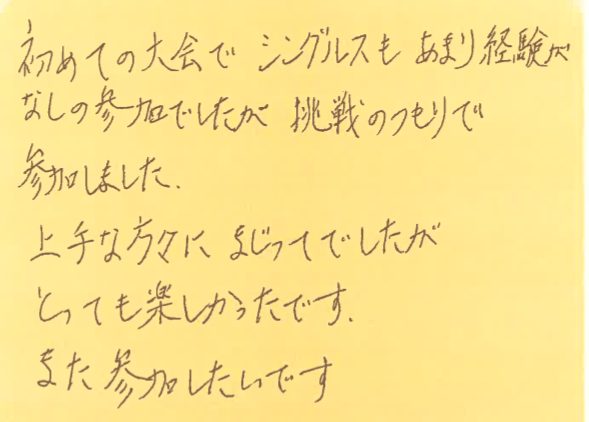 初めての大会で シングルスも あまり経験が
なしの参加でしたが 挑戦のつもりで
参加しました.
上手な方々に まじってでしたが
とっても楽しかったです.
また参加したいです